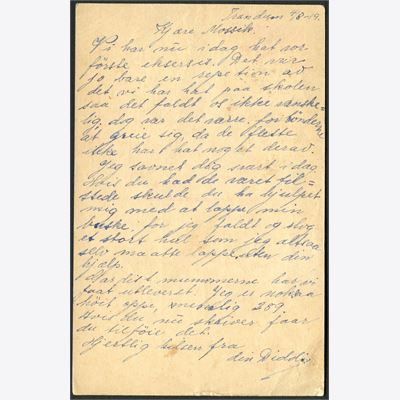 Trandum 4/8-19.
Kjære Mossik!
Vi har nu idag hat vor
förste eksersis. Det var
jo bare en repetion av
det vi har hat paa skolen
saa det faldt os ikke vanske-
lig, dog var det værre for
at greie sig, da de fleste
ikke har hat noget derav.
Jeg savnet dig svært idag
Hvis du hadde været til-
stede skulde du ha hjulpet
mig med at lappe min
bukse. for jeg faldt og slog
et stort hul som jeg altsaa
selv maatte lappe uten din
hjelp.
numerne har vi
faat utleveret. Jeg er nokså
höit oppe, nemlig 289.
Hvis du nu skriver faar
du tilföie det.
Hjertlig hilsen fra
din Diddi